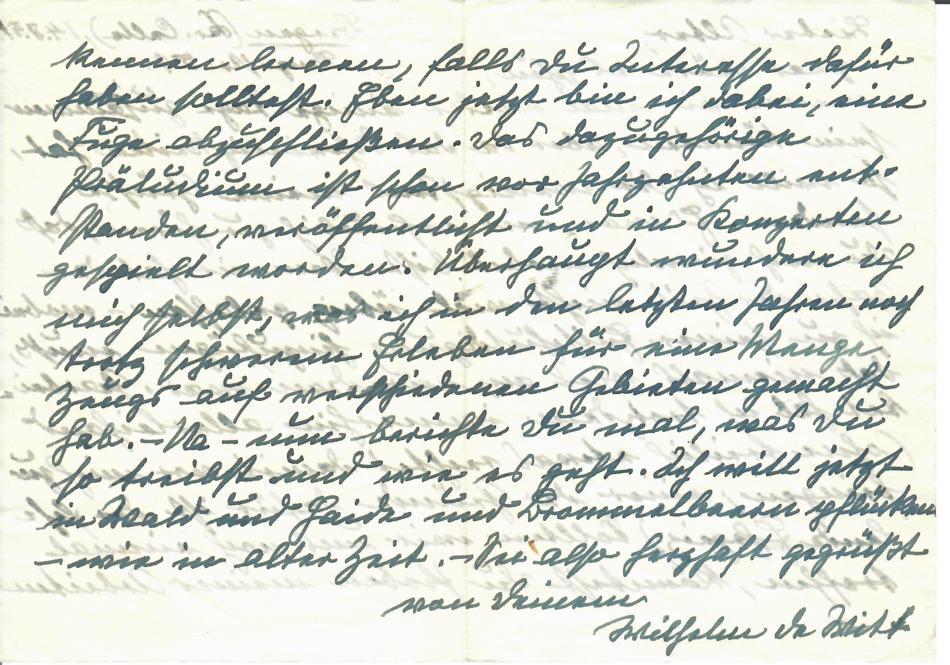 kennen lernen, falls du Interesse dafür
haben solltest. Eben jetzt bin ich dabei, eine
Fuge abzuschließen. Das dazugehörige
Präludium ist schon vor Jahrzehnten ent-
standen, veröffentlicht und in Konzerten
gespielt worden. Überhaupt wundere ich
mich selbst, was ich in den letzten Jahren noch
trotz schwerem Erleben für eine Menge
Zeugs auf verschiedenen Gebieten gemacht
hab. – Na – nun berichte du mal, was du
so treibst und wie es geht. Ich will jetzt
in Wald und Haide und Brommelbeern pflücken
– wie in alter Zeit. – Sei also herzhaft gegrüßt
von deinem
Wilhelm de Witt